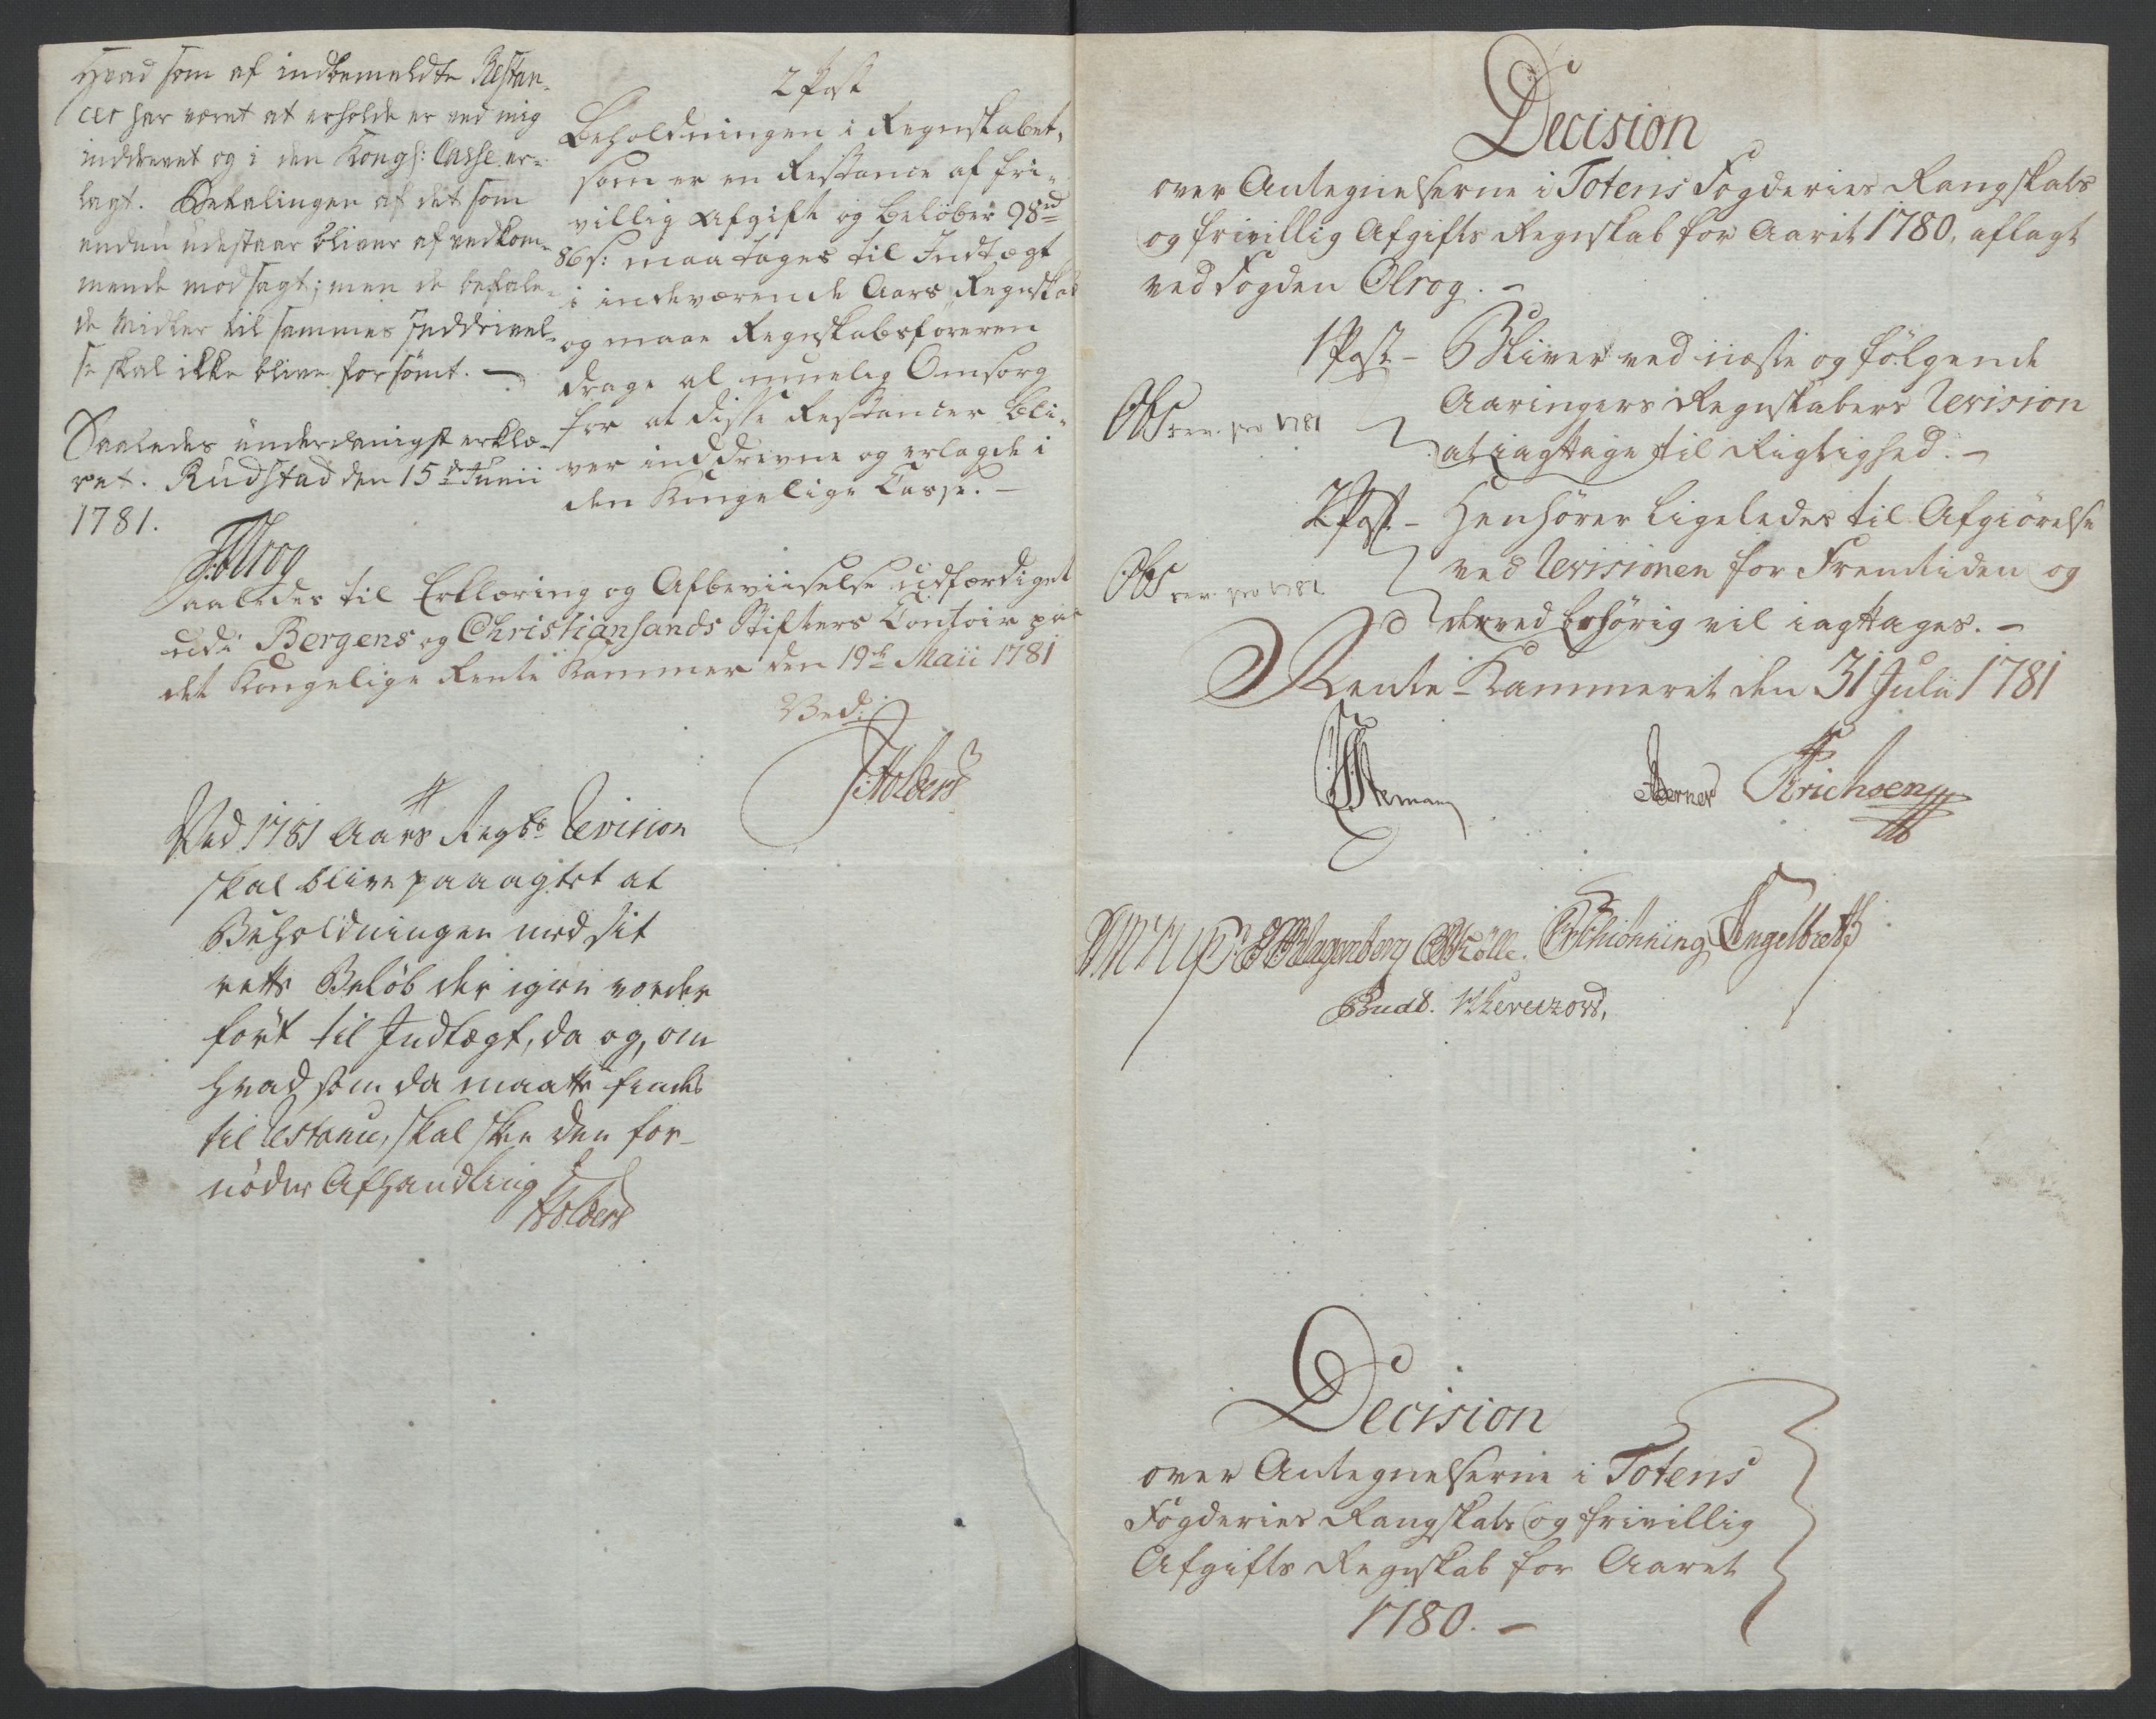 Hvad som af indbemeldte Restan-
cer har været at erholde er ved mig
inddrevet og i den Kongs: Casse er-
lagt. Betalingen af det som
endnu udestaar bliver af vedkom-
mende modsagt; men de befale-
de Midler til sammes Inddrivel-
se skal ikke blive forsömt. —
Saaledes underdanigst erklæ-
ret. Rudstad den 15de Junii
1781.
Olrog
2 Post
Beholdningen i Regnskabet,
som er en Restance af fri-
villig Afgift og beløber 98 rd
86 s: maa tages til Indtægt
i indeværende Aars Regnskab
og maae Regnskabsføreren
drage al muelig Omsorg
for at disse Restancer bli-
ver inddrevne og erlagde i
den Kongelige Casse. —
Saaledes til Erklæring og Afbeviiselse udfærdiget
udi Bergens og Christiansands Stifters Contoir paa
det Kongelige Rente Kammer den 19de Maii 1781
Ved:
Holbers
Ved 1781 Aars Regsk: Revision
skal blive paaagtet at
Beholdningen med sit
rette Beløb der igien vorder
ført til Indtægt, da og, om
hvad som da maatte findes
til Restance, skal skee den for-
nødne Afhandling
Holbers
Decision
over Antegnelserne i Totens Fogderies Rangskats
og frivillig Afgifts Regnskab for Aaret 1780, aflagt
ved Fogden Olrog. —
1 Post — Bliver ved næste og følgende
Aaringers Regnskabers Revision
Obs rev. pro 1781
at iagttage til Rigtighed. —
2 Post — Henhører ligeledes til Afgiørelse
Obs rev. pro 1781
ved Revisionen for Fremtiden og
derved behørig vil iagttages. —
Rente-Kammeret den 31 Julii 1781
Stemann Berner Erichsen
Wagenberg Schiönning Engelbreth
Decision
over Antegnelserne i Totens
Fogderies Rangskats og frivillig
Afgifts Regnskab for Aaret
1780. —